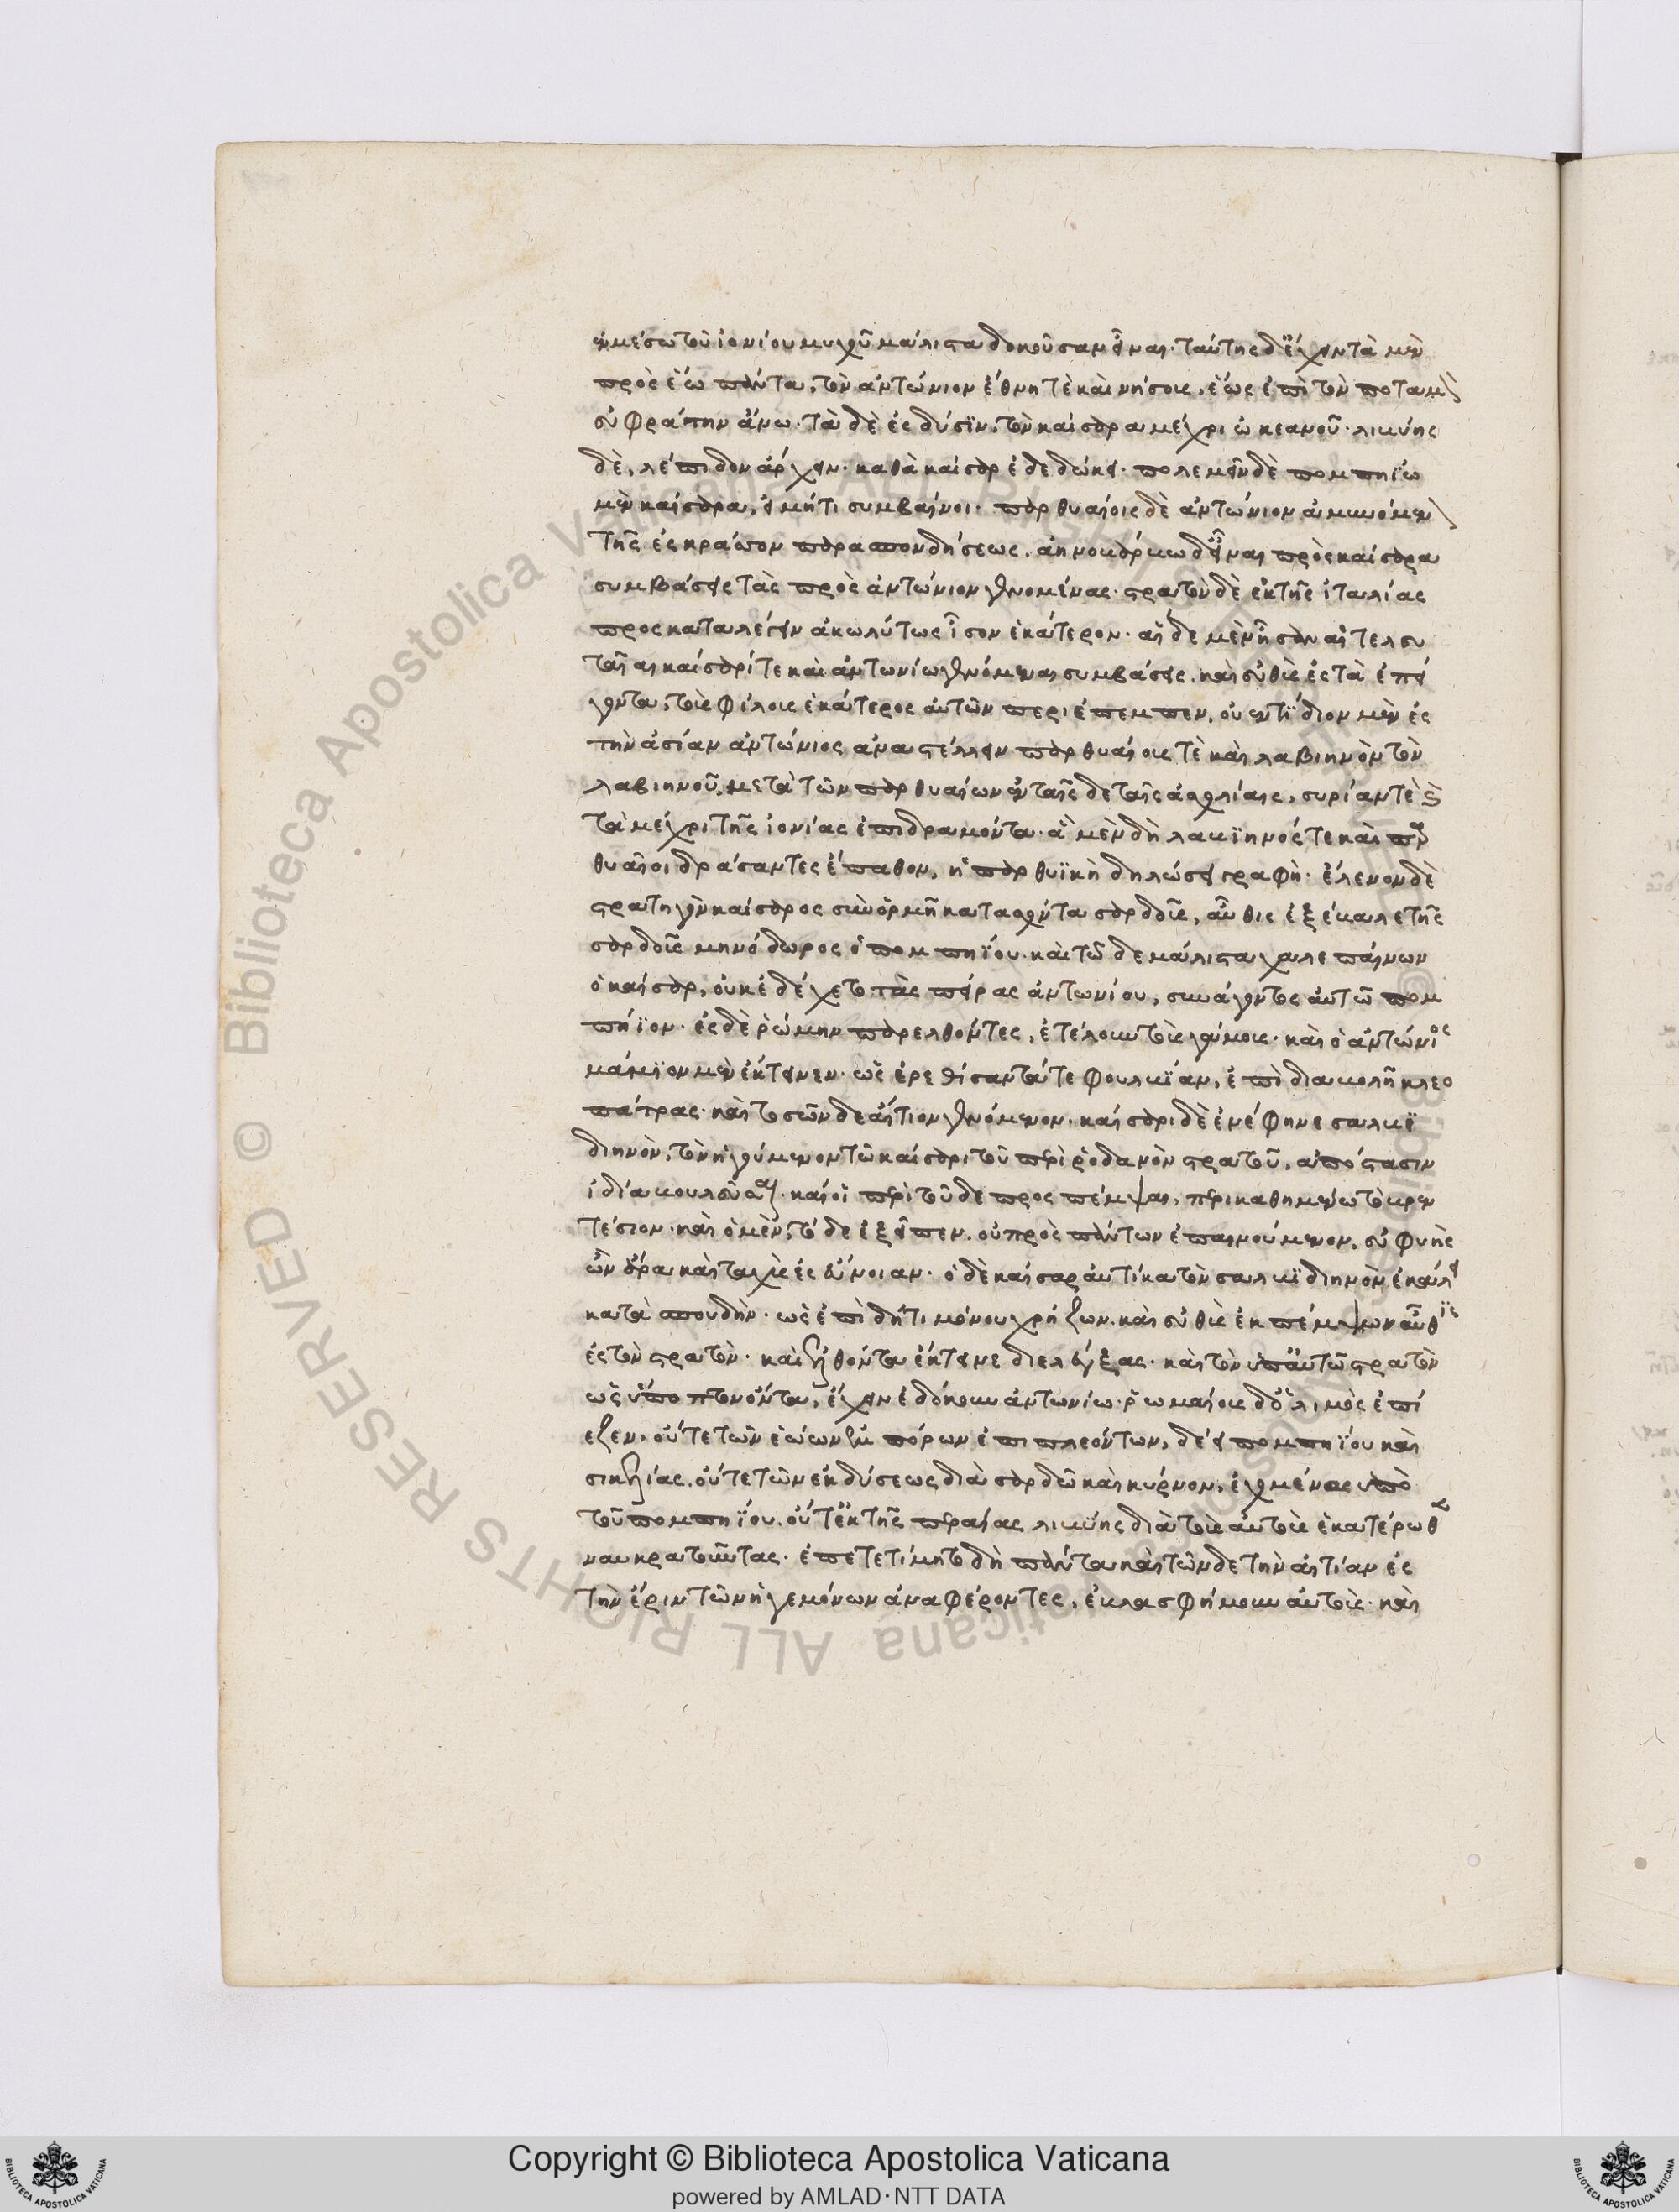 ἐν μέσω τοῦ ἰονίου μυχοῦ μάλιστα δοκοῦσαν εἶναι· ταύτης δὲ ἔχειν τὰ μὲν
πρὸς ἕω πάντα, τὸν ἀντώνιον ἔθνη τὲ καὶ νήσους, ἕως ἐπὶ τὸν ποταμὸν
εὐφράτην ἄνω· τὰ δὲ ἐς δύσϊν, τὸν καίσαρα μέχρι ὠκεανοῦ· λιβύης
δὲ, λέπιδον ἄρχειν· καθὰ καίσαρ ἐδεδώκει· πολεμεῖν δὲ πομπηΐω
μὲν καίσαρα, εἰ μήτι συμβαίνοι· παρθυαίοις δὲ ἀντώνιον ἀμυνόμενον
τῆς ἐς κράσσον παρασπονδήσεως. αἠνοβάρβω δὲ εἶναι πρὸς καίσαρα
συμβάσεις τὰς πρὸς ἀντώνιον γενομένας· στρατὸν δὲ ἐκ τῆς ἰταλίας
προσκαταλέγειν ἀκωλύτως ἴσον ἑκάτερον· αἵδε μὲν ἦσαν αἱ τελευ
ταῖαι καίσαρί τε καὶ ἀντωνίω γενόμεναι συμβάσεις. καὶ εὐθὺς ἐς τὰ ἐπεί
γοντα, τοὺς φίλους ἑκάτερος αὐτῶν περιέπεμπεν, οὐεντΐδιον μὲν ἐς
τὴν ἀσίαν ἀντώνιος ἀναστέλλειν παρθυαίους τὲ καὶ λαβιηνὸν τὸν
λαβιηνοῦ, μετὰ τῶν παρθυαίων ἐν ταῖς δε ταῖς ἀσχολίαις, συρίαν τὲ καὶ
τὰ μέχρι τῆς ἰονίας ἐπιδραμόντα· ἃ μὲν δὴ λαβϊηνός τε καὶ παρ
θυαῖοι δράσαντες ἔπαθον, ἡ παρθυϊκὴ δηλώσει γραφή· ἕλενον δὲ
στρατηγὸν καίσαρος σὺν ὁρμῆ κατασχόντα σαρδοῦς, αὖθις ἐξέβαλε τῆς
σαρδοῦς μηνόδωρος ὁ πομπηΐου· καὶ τῶδε μάλιστα χαλεπαίνων
ὁ καίσαρ, οὐκ ἐδέχετο τὰς πείρας ἀντωνίου, συνάγοντος αὐτῶ πομ
πήϊον· ἐς δὲ ῥώμην παρελθόντες, ἐτέλουν τοὺς γάμους· καὶ ὁ ἀντώνιος
μάνιον μὲν ἔκτεινεν· ὡς ἐρεθίσαντά τε φουλβΐαν, ἐπὶ διαβολῆ κλεο
πάτρας· καὶ τοσῶνδε αἴτιον γενόμενον· καίσαρι δὲ ἐνέφηνε σαλβϊ
διηνὸν, τὸν ἡγούμενον τῶ καίσαρι τοῦ περὶ ῥοδανὸν στρατοῦ, ἀπόστασιν
ἰδία βουλεῦσαι· καί οἱ περὶ τοῦδε προσπέμψαι, περικαθημένω τὸ βρεν
τέσιον· καὶ ὁ μὲν, τόδε ἐξεῖπεν. οὐ πρὸς πάντων ἐπαινούμενον, εὐφυὴς
ὢν ἄρα καὶ ταχὺς ἐς εὔνοιαν· ὁ δὲ καίσαρ αὐτίκα τὸν σαλβϊδιηνὸν ἐκάλει
κατὰ σπουδὴν· ὡς ἐπὶ δή τι μόνου χρήζων. καὶ εὐθὺς ἐκπέμψων αὖθϊς
ἐς τὸν στρατὸν· καὶ ἐλθόντα ἔκτεινε διελέγξας· καὶ τὸν ὑπ' αὐτῶ στρατὸν
ὡς ὕποπτον ὄντα, ἔχειν ἐδίδου ἀντωνίω· ῥωμαίους δὲ ὁ λιμὸς ἐπί
εζεν. οὔτε τῶν ἑώων ἐμπόρων ἐπιπλεόντων, δέει πομπηΐου καὶ
σικελίας. οὔτε τῶν ἐκ δύσεως διὰ σαρδὼ καὶ κύρνον, ἐχομένας ὑπὸ
τοῦ πομπηΐου. οὔτ' ἐκ τῆς περαίας λιβύης διὰ τοὺς αὐτοὺς ἑκατέρωθεν
ναυκρατοῦντας· ἐπετετίμητο δὴ πάντα καὶ τῶνδε τὴν αἰτίαν ἐς
τὴν ἔριν τῶν ἡγεμόνων ἀναφέροντες, ἐβλασφήμουν αὐτοὺς· καὶ